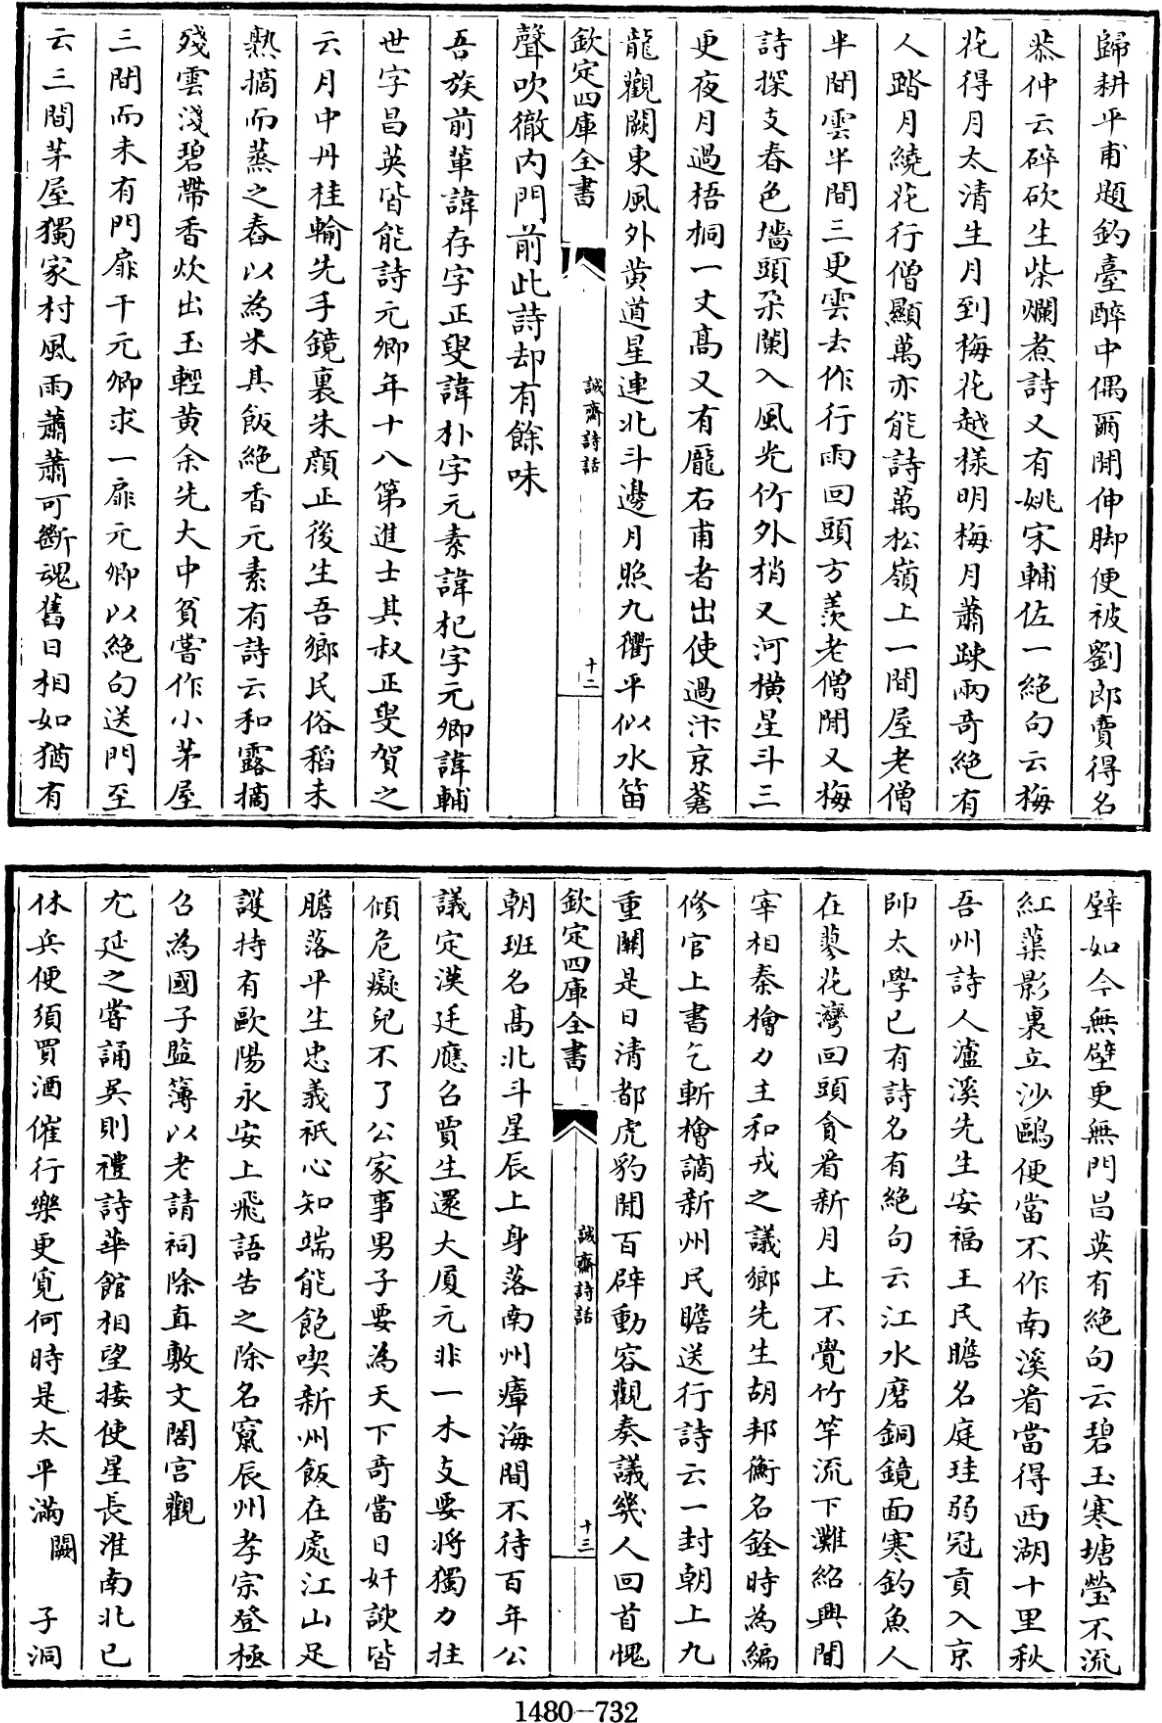 歸耕平甫題釣臺醉中偶爾閒伸脚便被劉郎賣得名
恭仲云碎砍生柴爛煮詩又有姚宋輔佐一絶句云梅
花得月太清生月到梅花越樣明梅月蕭踈兩奇絶有
人踏月繞花行僧顯萬亦能詩萬松嶺上一間屋老僧
半間雲半間三更雲去作行雨回頭方羨老僧閒又梅
詩探支春色墻頭朶闌入風光竹外梢又河横星斗三
更夜月過梧桐一丈髙又有龎右甫者出使過汴京蒼
龍觀闕東風外黄道星連北斗邊月照九衢平似水笛
欽定四庫全書
誠齋詩話
十二
聲吹徹内門前此詩却有餘味
吾族前軰諱存字正叟諱朴字元素諱杞字元卿諱輔
世字昌英皆能詩元卿年十八第進士其叔正叟賀之
云月中丹桂輸先手鏡裏朱顔正後生吾鄉民俗稻未
熟摘而蒸之舂以為米其飯絶香元素有詩云和露摘
殘雲淺碧帶香炊出玉輕黄余先大中貧嘗作小茅屋
三間而未有門扉干元卿求一扉元卿以絶句送門至
云三間茅屋獨家村風雨蕭蕭可斷魂舊日相如猶有
壁如今無壁更無門昌英有絶句云碧玉寒塘瑩不流
紅蕖影裏立沙鷗便當不作南溪看當得西湖十里秋
吾州詩人瀘溪先生安福王民瞻名庭珪弱冠貢入京
師太學已有詩名有絶句云江水磨銅鏡面寒釣魚人
在蓼花灣回頭貪看新月上不覺竹竿流下灘紹興間
宰相秦檜力主和戎之議鄉先生胡邦衡名銓時為編
修官上書乞斬檜謫新州民瞻送行詩云一封朝上九
重關是日清都虎豹閒百辟動容觀奏議幾人回首愧
欽定四庫全書
誠齋詩話
十三
朝班名髙北斗星辰上身落南州瘴海間不待百年公
議定漢廷應召賈生還大厦元非一木支要將獨力拄
傾危癡兒不了公家事男子要為天下奇當日奸諛皆
膽落平生忠義祇心知端能飽喫新州飯在處江山足
護持有歐陽永安上飛語告之除名竄辰州孝宗登極
召為國子監簿以老請祠除直敷文閣宫觀
尤延之嘗誦吳則禮詩華館相望接使星長淮南北已
休兵便須買酒催行樂更覓何時是太平滿闕子洞
1480-732